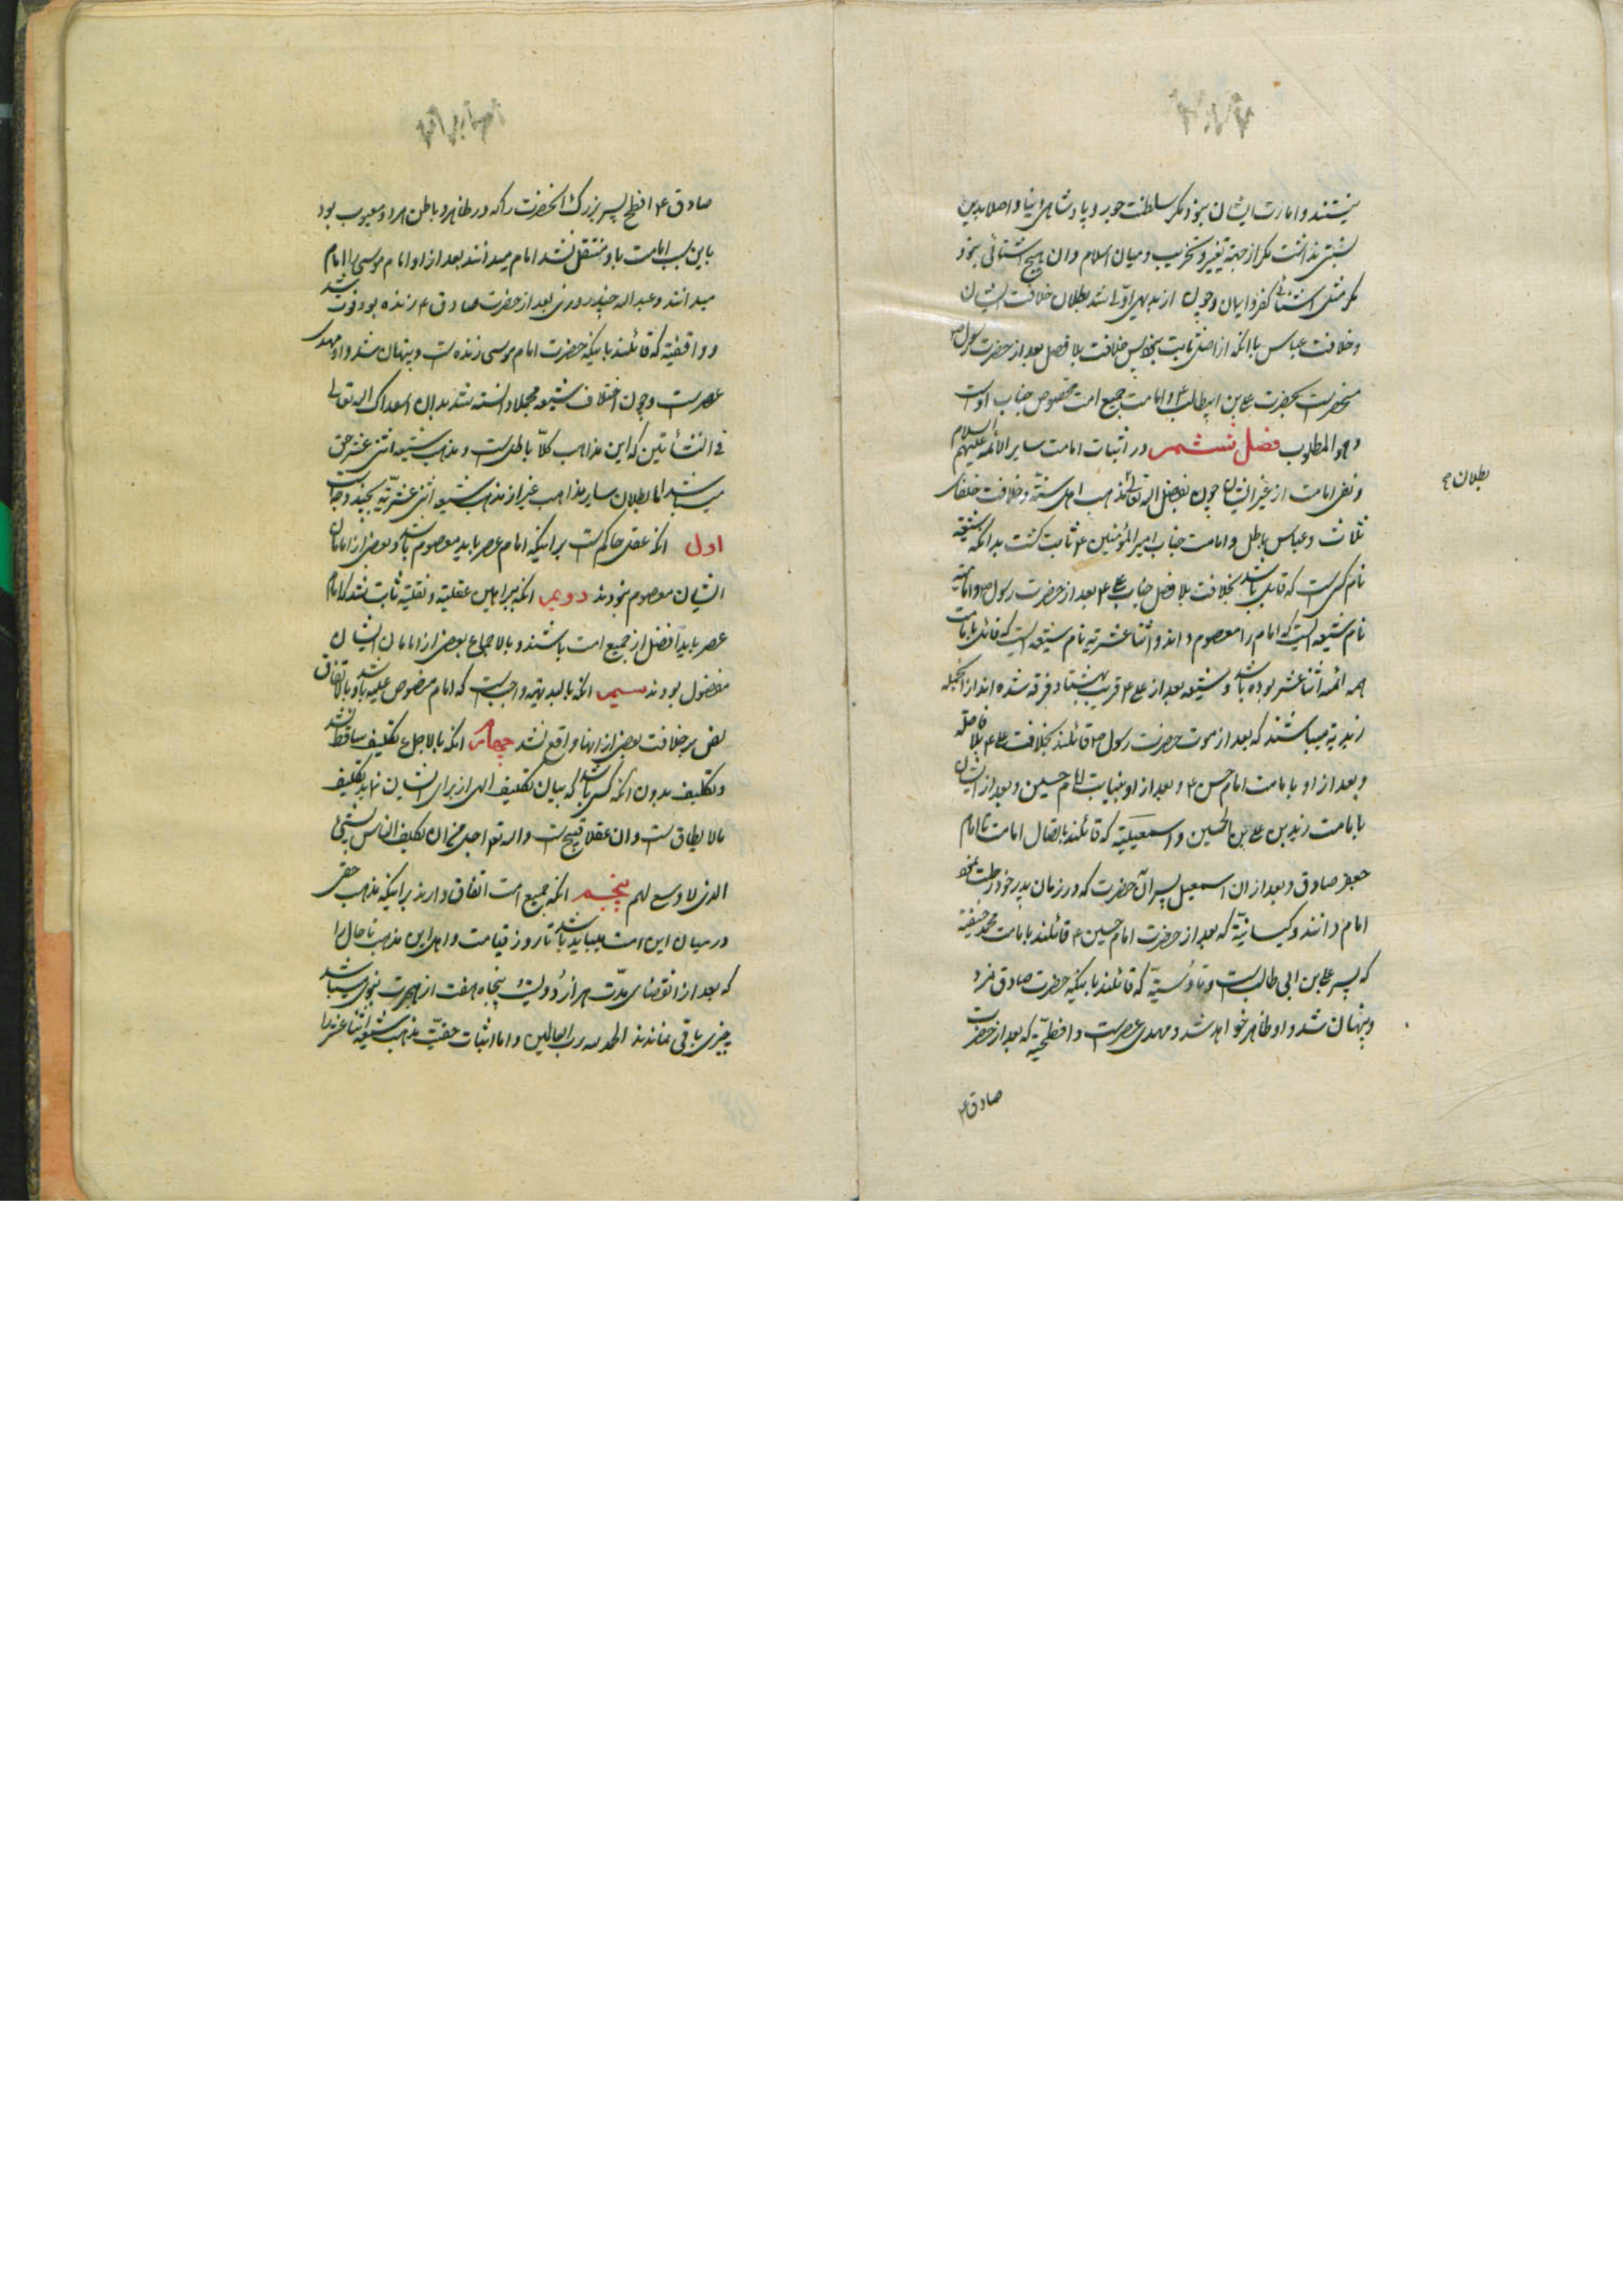 نیستند و امارت ایشان نبود مگر سلطنت جور و پادشاهی دنیا و اصلا بدین
نسبتی نداشت مگر از جهة تغییر و تخریب و میان اسلام و ان هیچ اشنائی نبود
مگر مثل اشنائی کفر و ایمان و چون از بدیهی اولی شد بطلان خلافت ایشان
و خلافت عباس با انکه از اصل ثابت نبود پس خلافت بلا فصل بعد از حضرت رسول ص
منحصر است بحضرت علی بن ابیطالب ع و امامت جمیع امت مخصوص جناب اوست
و هو المطلوب فصل ششم در اثبات امامت سایر الائمه علیهم السلام
و نفی امامت از غیر ایشان چون بفضل اله تعالی مذهب اهل سنة و خلافت خلفای
بطلان
ثلاث و عباس باطل و امامت جناب امیر المؤمنین ع ثابت کشت بدانکه شیعه
نام کسی است که قایل باشد بخلافت بلا فصل جناب علی ع بعد از حضرت رسول ص و امامیه
نام شیعه ایست که امام را معصوم داند و اثنا عشریه نام شیعه ایست که قائل بامامت
همه ائمه اثنا عشر بوده باشد و شیعه بعد از علی ع قریب بهشتاد فرقه شده اند از انجمله
زیدیه میباشند که بعد از موت حضرت رسول ص قائلند بخلافت علی ع بلا فاصله
و بعد از او بامامت امام حسن ع و بعد از او بنیابت امام حسین و بعد از ایشان
بامامت زید بن علی بن الحسین و اسمعیلیه که قائلند باتصال امامت تا امام
جعفر صادق و بعد از ان اسمعیل پسر آن حضرت که در زمان پدر خود رحلت نمود
امام دانند و کیسانیه که بعد از حضرت امام حسین ع قائلند بامامت محمد حنفیه
که پسر علی بن ابی طالب است و ناوسیه که قائلند باینکه حضرت صادق نمرد
و پنهان شد و او ظاهر خواهد شد و مهدی عصر است و افطحیه که بعد از حضرت
صادق ع
صادق ع افطح پسر بزرک انحضرت را که در ظاهر و باطن هر دو معیوب بود
باین سبب امامت باو منتقل نشد امام میدانند بعد از او امام موسی را امام
میدانند و عبد اله چند روزی بعد از حضرت صادق ع زنده بود فوت شد
و واقفیه که قائلند باینکه حضرت امام موسی زنده است و پنهان شد و او مهدی
عصر است و چون اختلاف شیعه مجملا دانسته شد بدان اسعدک اله تعالی
فی النشأتین که این مذاهب کلا باطل است و مذهب شیعه اثنی عشر حق
میباشد اما بطلان سایر مذاهب غیر از مذهب شیعه اثنی عشریه بچند وجه است
اول انکه عقل حاکم است بر اینکه امام عصر باید معصوم باشد و بعضی از امامان
ایشان معصوم نبودند دویم انکه ببراهین عقلیه و نقلیه ثابت شد که امام
عصر باید افضل از جمیع امت باشند و بالاجماع بعضی از امامان ایشان
مفضول بودند سیم انکه بالبدیهه واجب است که امام منصوص علیه باشد و بالاتفاق
نص بر خلافت بعضی از انها واقع نشد چهارم انکه بالاجماع تکلیف ساقط نشد
و تکلیف بدون انکه کسی باشد که بیان تکلیف الهی از برای ایشان نماید تکلیف
ما لا یطاق است و ان عقلا قبیح است و اله تعالی اجل من ان یکلف الناس بشیئ
الذی لا وسع لهم پنجم انکه جمیع امت اتفاق دارند بر اینکه مذهب حقی
در میان این امت میباید باشد تا روز قیامت و اهل این مذهب تا حال را
که بعد از انقضای مدت هزار و دویست و پنجاه هفت از هجرت نبوی میباشد
چیزی باقی نماندند الحمد لله رب العالمین و اما اثبات حقیت مذهب شیعه اثنا عشر را